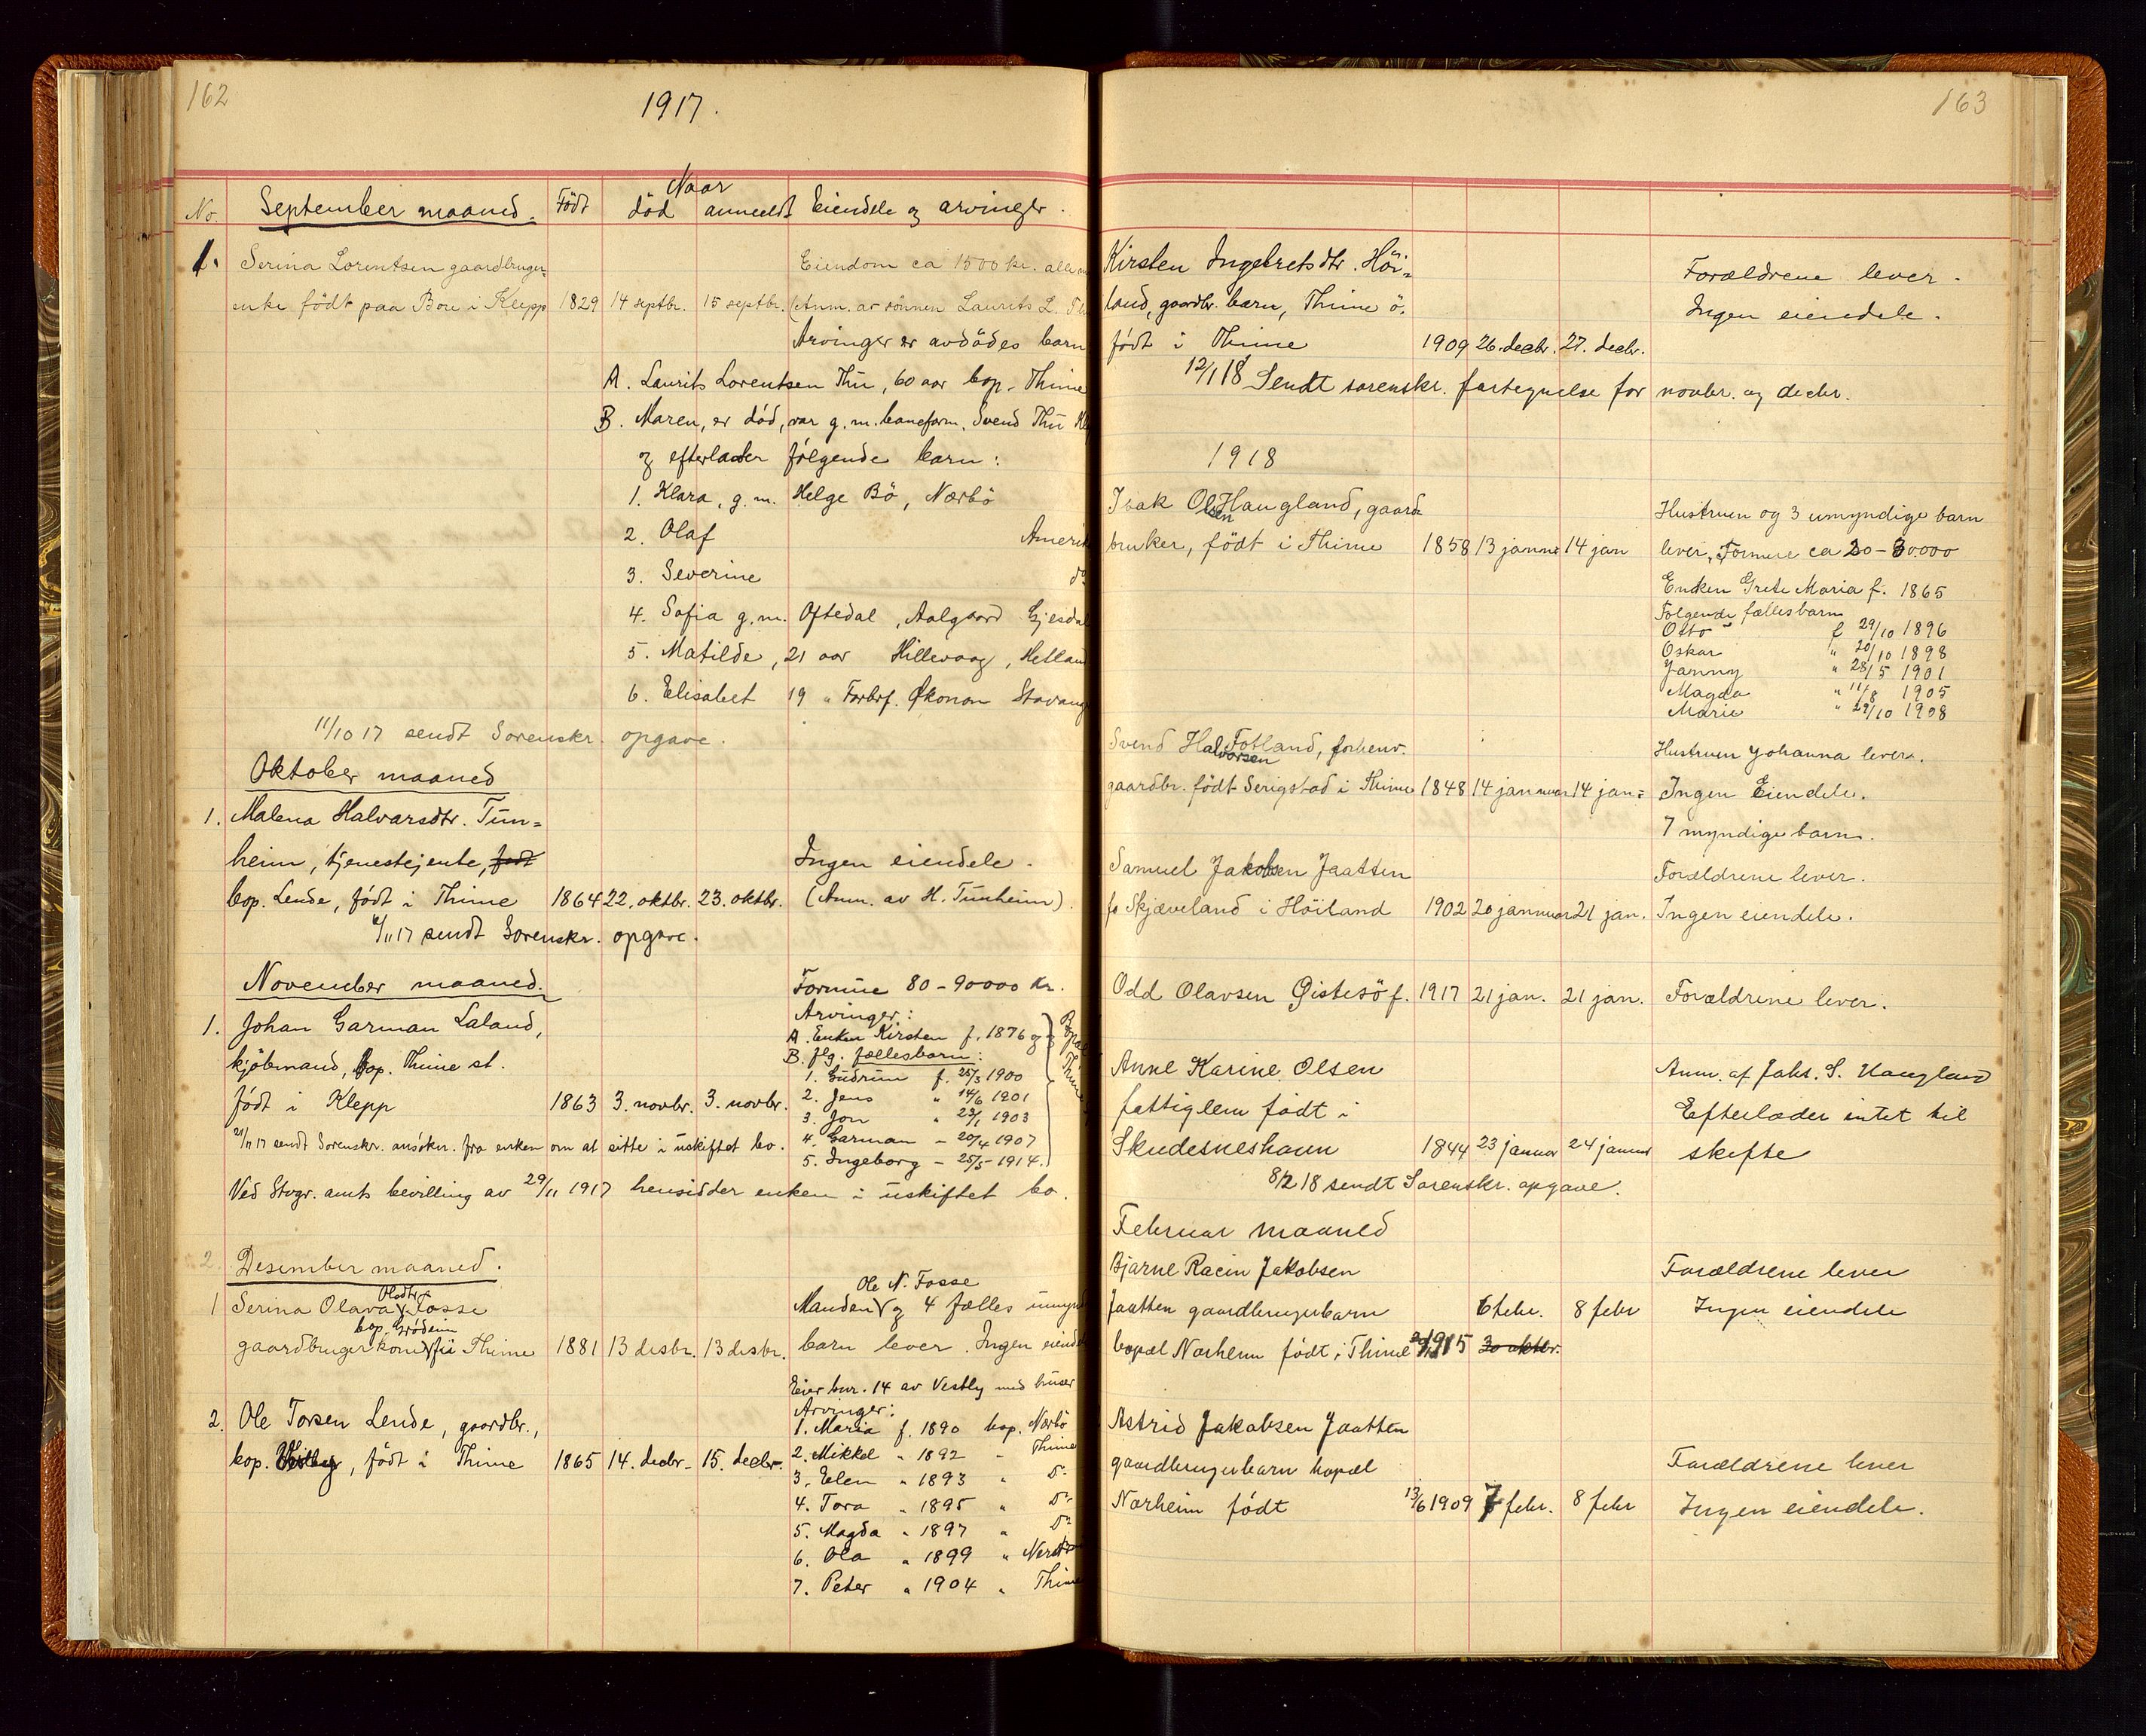 162
1917.
No. September maaned. Født Naar død anmeldt Eiendele og arvinger.
1. Serina Lorentsen gaardbruger= Eiendom ca 1500 kr.
enke født paa Bore i Klepp 1829 14 septbr. 15 septbr. (Anm. av sønnen Laurits L.
Arvinger er avdødes barn
A. Laurits Lorentsen Thu, 60 aar bop. Thime
B. Maren, er död, var g. m. baneform. Svend Thu
og efterlader følgende barn:
1. Klara, g. m. Helge Bö, Nærbö
2. Olaf Amerik
3. Severine do
4. Sofia g. m. Oftedal, Aalgaard Gjesdal
5. Matilde, 21 aar Hillevaag, Hetland
6. Elisabet 19 " Forbrf. Økonom Stavang
11/10 17 sendt Sorenskr. opgave.
Oktober maaned
1. Malena Halvarsdtr. Tun=
heim, tjenestejente, født Ingen eiendele.
bop. Lende, født i Thime 1864 22. oktbr. 23. oktbr. (Anm. av H. Tunheim).
6/11 17 sendt Sorenskr. opgave.
November maaned. Formue 80-90000 kr.
1. Johan Garman Laland, Arvinger:
A. Enken Kirsten f. 1876 og
kjöbmand, bop. Thime st. B. flg. fællesbarn: Bopæl Thime
1. Gudrun f. 25/3 1900
født i Klepp 1863 3. novbr. 3. novbr. 2. Jens " 14/6 1901
3. Jon " 23/1 1903
21/11 17 sendt Sorenskr. ansökn. fra enken om at sitte i uskiftet bo. 4. Garman - 20/4 1907
5. Ingeborg - 25/5 1914.
Ved Stvgr. amts bevilling av 29/11 1917 hensidder enken i uskiftet bo.
2. Desember maaned.
Oladtr. Ole N. Fosse
1 Serina Olava Fosse Manden og 4 fælles umynd
bop. Grödeim
gaardbrugerkone fü Thime 1881 13 desbr. 13 desbr. barn lever. Ingen eiende
Eier bnr. 14 av Vestly med huser
2. Ole Torsen Lende, gaardbr., Arvinger:
1. Maria f. 1890 bop. Nærbö
bop. Vestly, födt i Thime 1865 14. decbr. 15. decbr. 2. Mikkel " 1892 - Thime
3. Elen " 1893 " Do
4. Tora " 1895 " Do
5. Magda " 1897 " Do
6. Ola " 1899 "
7. Peter " 1904 " Thime
163
Kirsten Ingebretsdtr. Höi= Forældrene lever.
land, gaardbr. barn, Thime ö. Ingen eiendele.
født i Thime 1909 26. decbr. 27. decbr.
12/1 18 Sendt sorenskr. fortegnelse for novbr. og decbr.
1918
Isak Olsen Haugland, gaard= Hustruen og 3 umyndige barn
bruker, født i Thime 1858 13 januar 14 jan lever, Formue ca 20-30000
Enken Grete Maria f. 1865
Følgende fællesbarn
Otto f 29/10 1896
Oskar " 20/10 1898
Janny " 28/5 1901
Magda " 11/8 1905
Marie " 29/10 1908
Svend Halvorsen Fotland, forhenv. Hustruen Johanna lever.
gaardbr. født Serigstad i Thime 1848 14 januar 14 jan. Ingen Eiendele.
7 myndige barn.
Samuel Jakobsen Jaatten Forældrene lever.
fø Skjæveland i Höiland 1902 20 januar 21 jan. Ingen eiendele.
Odd Olavsen Gistesö f. 1917 21 jan. 21 jan. Forældrene lever.
Anne Karine Olsen Anm. af Jahs. S. Haugland
fattiglem født i Efterlader intet til
Skudesneshavn 1844 23 januar 24 januar skifte
8/2 18 sendt Sorenskr. opgave.
Februar maaned
Bjarne Racin Jakobsen Forældrene lever
Jaatten gaardbrugerbarn 6 febr. 8 febr Ingen eiendele
bopæl Norheim født i Thime 1915 30 oktbr.
Astrid Jakobsen Jaatten
gaardbrugerbarn bopæl Forældrene lever
Norheim født 13/6 1909 7 febr. 8 febr Ingen eiendele.